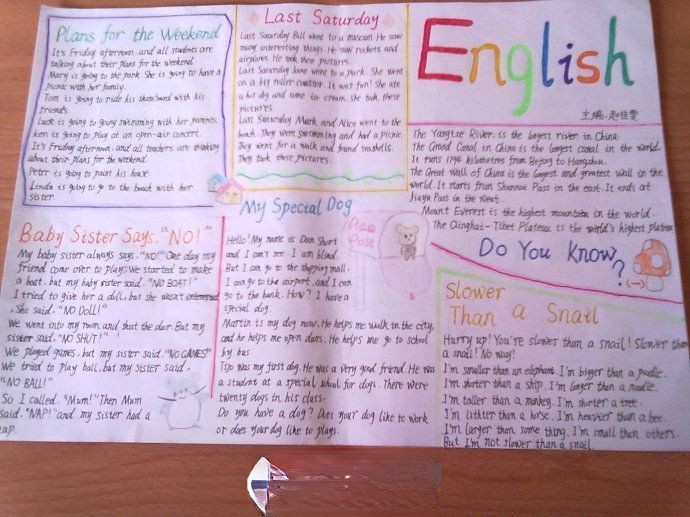 Plans for the Weekend
It's Friday afternoon and all students are
talking about their plans for the weekend.
Mary is going to the park. She is going to have a
picnic with her family.
Tom is going to ride his skateboard with his
friends.
Luck is going to going swimming with her parents.
ken is going to play at an open-air concert.
It's Friday afternoon and all teachers are thinking
about their plans for the weekend.
Peter is going to paint his house
Linda is going to go to the beach with her
sister
Last Saturday
Last Saturday Bill went to a museum. He saw
many interesting things. He saw rockets and
airplanes. He took these pictures.
Last Saturday Jane went to a park. She went
on a big roller coaster. It was fun! She ate
a hot dog and some ice cream. she took these
pictures.
Last Saturday Mark and Alice went to the
beach. They went swimming and had a picnic.
They went for a walk and friend seashells.
They took these pictures.
English
主编:赵佳雯
The Yangtze River is the longest river in China.
The Grand Canal in China is the longest canal in the world.
It runs 1794 kilometres from Beijing to Hangzhou.
The Great Wall of China is the longest and greatest wall in the
world. It starts from Shanhai Pass in the east. It ends at
Jiayu Pass in the west.
Mount Everest is the highest mountain in the world.
The Qinghai-Tibet Plateau is the world's highest plateau
Do You Know?
Baby Sister Says, "NO!"
My baby sister always says, "NO!" One day my
friend come over to play. We started to make
a boat, but my baby sister said. "NO BOAT!"
I tried to give her a doll, but she wasn't interested
. She said. "NO DOLL!"
We went into my room and shut the door. But my
sister said. "NO SHUT!"
We played games, but my sister said. "NO GAMES!"
We tried to play ball, but my sister said.
"NO BALL!"
So I called. "Mum!" Then Mum
said. "NAP!" and my sister had a
nap.
My Special Dog
Hello! My name is Dan Short
and I can't see. I am blind.
But I can go to the shopping mall.
I can go to the airport, and I can
go to the bank. How? I have a
special dog.
Martin is my dog now. He helps me walk in the city,
and he helps me open doors. He helps me go to school
by bus
Tijo was my first dog. He was a very good friend. He was
a student at a special school for dogs. There were
twenty dogs in his class.
Do you have a dog? Does your dog like to work
or does your dog like to plays.
Post
Slower
Than a Snail
Hurry up! You're slower than a snail! Slower than
a snail? No way!
I'm smaller than an elephant. I'm bigger than a poodle.
I'm shorter than a ship. I'm larger than a noodle.
I'm taller than a monkey. I'm shorter a tree.
I'm littler than a horse. I'm heavier than a bee.
I'm larger than some thing. I'm small than others.
But I'm not slower than a snail.